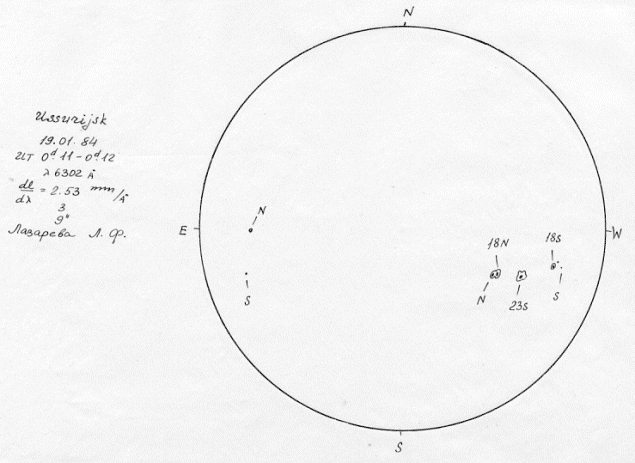 N
Ussurijsk
19.01.84
UT 0ᵈ11-0ᵈ12
λ 6302 Å
dl/dλ = 2.53 mm/Å
3
9"
Лазарева Л. Ф.
E
W
N
S
18N
N
23S
18S
S
S